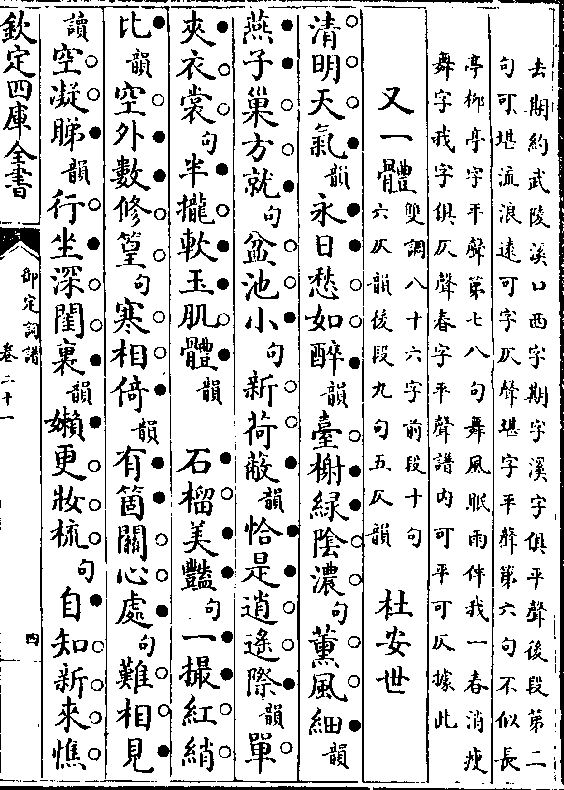 去期約武陵溪口西字期字溪字俱平聲後段第二
句可堪流浪遠可字仄聲堪字平聲第六句不似長
亭柳亭字平聲第七八句舞風眠雨伴我一春消瘦
舞字我字俱仄聲春字平聲譜内可平可仄據此
又一體 雙調八十六字前段十句
六仄韻後段九句五仄韻 杜安世
清明天氣韻永日愁如醉韻臺榭緑陰濃句薰風細韻
燕子巢方就句盆池小句新荷蔽韻恰是逍遥際韻單
夾衣裳句半攏軟玉肌體韻 石榴美豔句一撮紅綃
比韻空外數修篁句寒相倚韻有箇關心處句難相見
讀空凝睇韻行坐深閨裏韻嬾更妝梳句自知新來憔
欽定四庫全書
御定詞譜
卷二十一
四